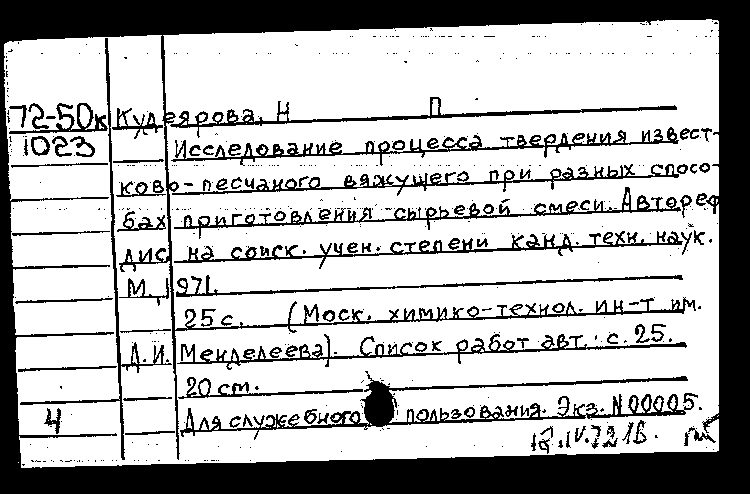 72-50к Кудеярова, Н П
1023 Исследование процесса твердения извест-
ково-песчаного вяжущего при разных спосо-
бах приготовления сырьевой смеси. Автореф
дис. на соиск. учен. степени канд. техн. наук.
М., 1971.
25 с. (Моск. химико-технол. ин-т им.
Д. И. Менделеева). Список работ авт.: с. 25.
20 см.
4 Для служебного пользования. Экз. N 00005.
18.IV.72 1б.